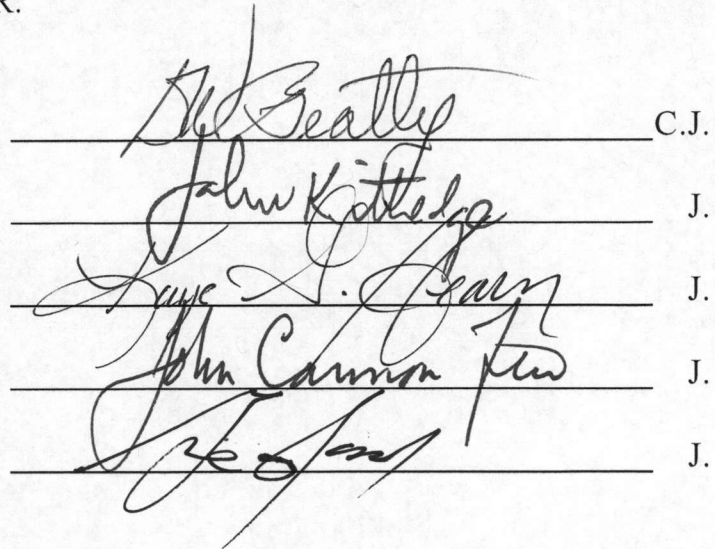 R.
Beatty C.J.
John Kittredge J.
Kaye G. Hearn J.
John Cannon Few J.
J.